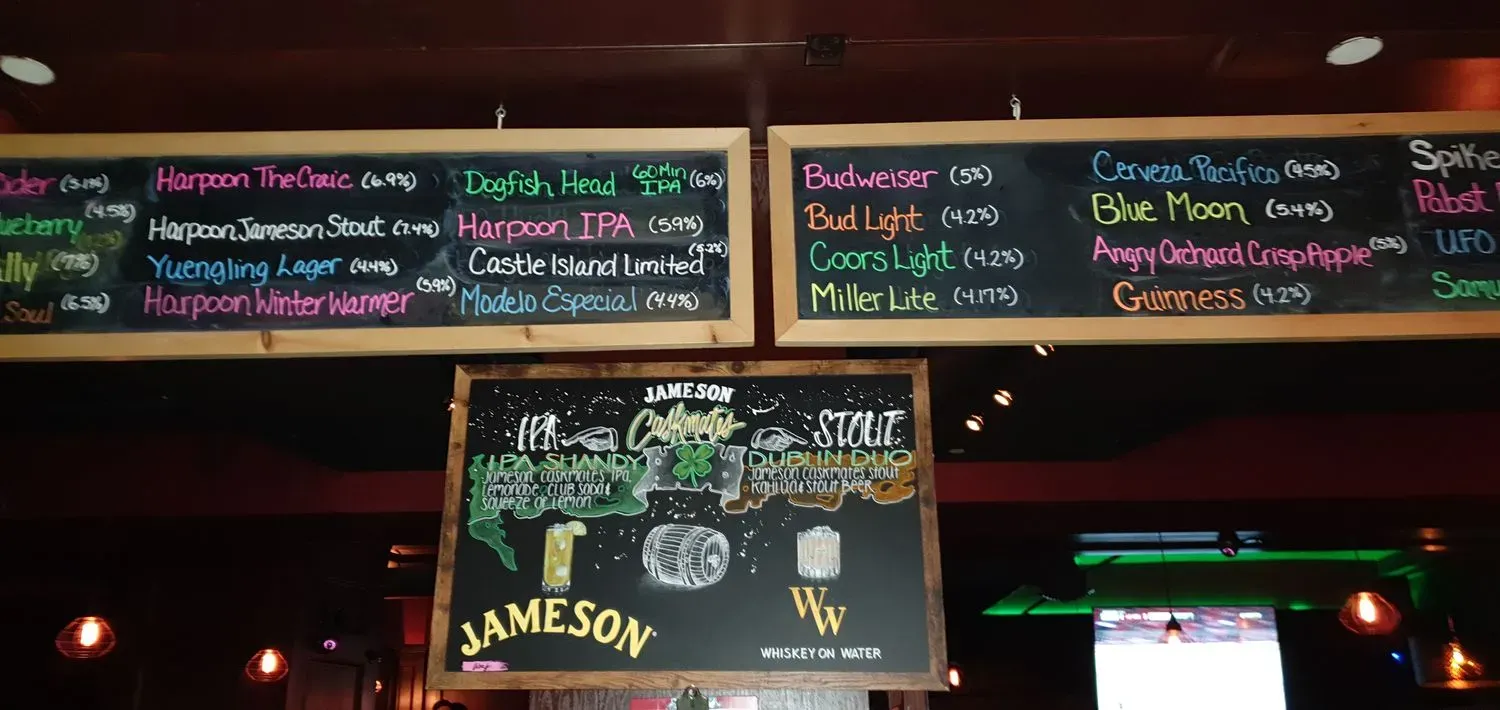 Cider (5.1%)
(4.5%)
ueberry
lly (7%)
Soul (6.5%)
Harpoon The Craic (6.9%)
Harpoon Jameson Stout (7.4%)
Yuengling Lager (4.4%)
Harpoon Winter Warmer (5.9%)
Dogfish Head 60 Min IPA (6%)
Harpoon IPA (5.9%)
Castle Island Limited (5.2%)
Modelo Especial (4.4%)
Budweiser (5%)
Bud Light (4.2%)
Coors Light (4.2%)
Miller Lite (4.17%)
Cerveza Pacifico (4.5%)
Blue Moon (5.4%)
Angry Orchard Crisp Apple (5%)
Guinness (4.2%)
Spike
Pabst
UFO
Samu
JAMESON
Caskmates
IPA
STOUT
IPA SHANDY
Jameson Caskmates IPA,
Lemonade, Club Soda &
Squeeze of Lemon
DUBLIN DUO
Jameson Caskmates Stout
Kahlua & Stout Beer
JAMESON
WW
WHISKEY ON WATER